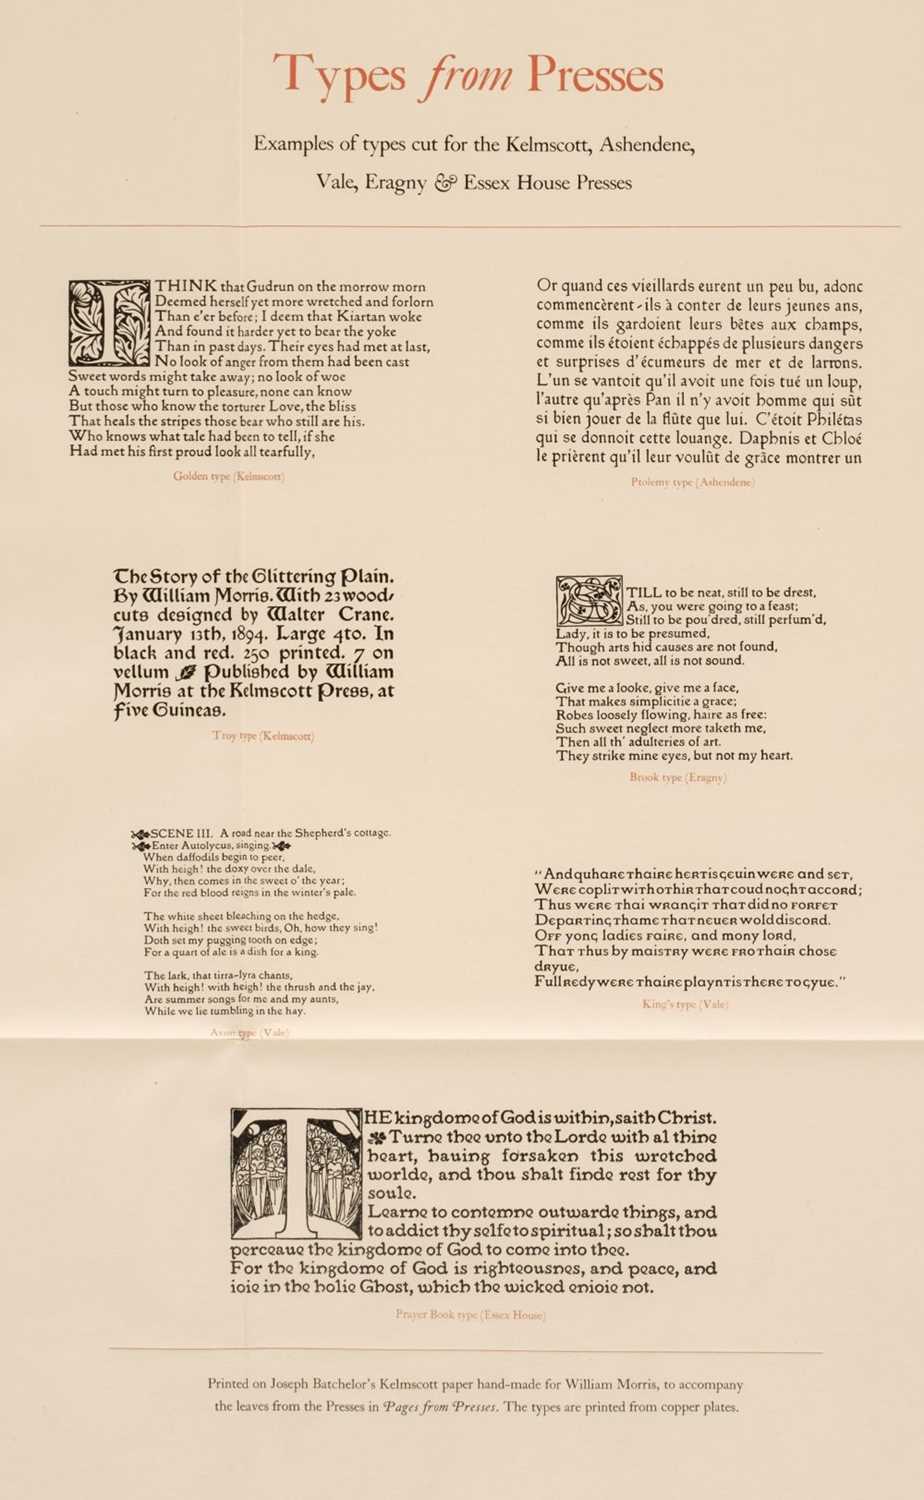 Types from Presses
Examples of types cut for the Kelmscott, Ashendene,
Vale, Eragny & Essex House Presses
I THINK that Gudrun on the morrow morn
Deemed herself yet more wretched and forlorn
Than e'er before; I deem that Kiartan woke
And found it harder yet to bear the yoke
Than in past days. Their eyes had met at last,
No look of anger from them had been cast
Sweet words might take away; no look of woe
A touch might turn to pleasure, none can know
But those who know the torturer Love, the bliss
That heals the stripes those bear who still are his.
Who knows what tale had been to tell, if she
Had met his first proud look all tearfully,
Golden type (Kelmscott)
Or quand ces vieillards eurent un peu bu, adonc
commencèrent-ils à conter de leurs jeunes ans,
comme ils gardoient leurs bêtes aux champs,
comme ils étoient échappés de plusieurs dangers
et surprises d'écumeurs de mer et de larrons.
L'un se vantoit qu'il avoit une fois tué un loup,
l'autre qu'après Pan il n'y avoit homme qui sût
si bien jouer de la flûte que lui. C'étoit Philétas
qui se donnoit cette louange. Daphnis et Chloé
le prièrent qu'il leur voulût de grâce montrer un
Ptolemy type (Ashendene)
The Story of the Glittering Plain.
By William Morris. With 23 wood-
cuts designed by Walter Crane.
January 13th, 1894. Large 4to. In
black and red. 250 printed. 7 on
vellum Published by William
Morris at the Kelmscott Press, at
five Guineas.
Troy type (Kelmscott)
STILL to be neat, still to be drest,
As, you were going to a feast;
Still to be pou'dred, still perfum'd,
Lady, it is to be presumed,
Though arts hid causes are not found,
All is not sweet, all is not sound.
Give me a looke, give me a face,
That makes simplicitie a grace;
Robes loosely flowing, haire as free:
Such sweet neglect more taketh me,
Then all th' adulteries of art.
They strike mine eyes, but not my heart.
Brook type (Eragny)
SCENE III. A road near the Shepherd's cottage.
Enter Autolycus, singing.
When daffodils begin to peer,
With heigh! the doxy over the dale,
Why, then comes in the sweet o' the year;
For the red blood reigns in the winter's pale.
The white sheet bleaching on the hedge,
With heigh! the sweet birds, Oh, how they sing!
Doth set my pugging tooth on edge;
For a quart of ale is a dish for a king.
The lark, that tirra-lyra chants,
With heigh! with heigh! the thrush and the jay,
Are summer songs for me and my aunts,
While we lie tumbling in the hay.
Avon type (Vale)
"And quhare thaire hertis ȝeuin were and set,
Were coplit with othir that coud noȝht accord;
Thus were thai wrangit that did no forfet
Departing thame that neuer wold discord.
Off yong ladies faire, and mony lord,
That thus by maistry were fro thair chose
dryue,
Full redy were thaire playntis there to gyue."
King's type (Vale)
THE kingdome of God is within, saith Christ.
Turne thee vnto the Lorde with al thine
heart, hauing forsaken this wretched
worlde, and thou shalt finde rest for thy
soule.
Learne to contemne outwarde things, and
to addict thy selfe to spiritual; so shalt thou
perceaue the kingdome of God to come into thee.
For the kingdome of God is righteousnes, and peace, and
ioie in the holie Ghost, which the wicked enioie not.
Prayer Book type (Essex House)
Printed on Joseph Batchelor's Kelmscott paper hand-made for William Morris, to accompany
the leaves from the Presses in Pages from Presses. The types are printed from copper plates.